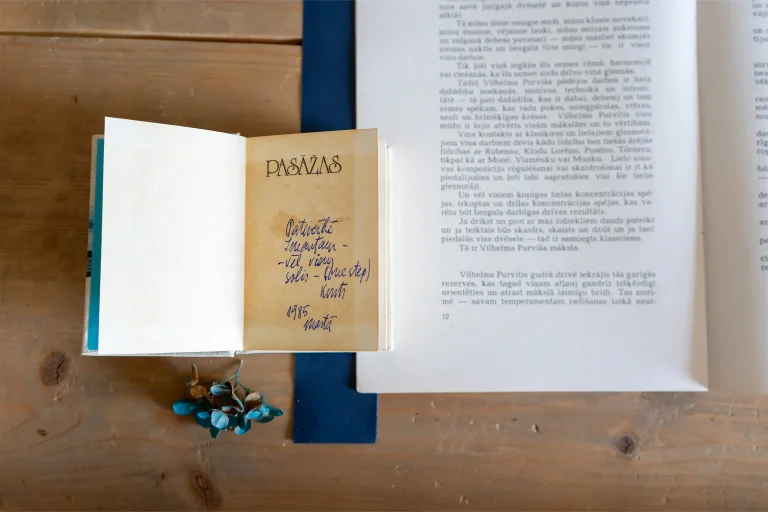 PASĀŽAS
Patiesībā
Imantam -
- vēl viens
solis - (one step)
Knuts
1985
martā
mos savā jutīgajā dvēselē un kuros viņā nepārstāj
aiklāt.
Tā mūsu zeme smagiè meži, mūsu klusie novakari,
un zaļganā debess pavasarī — mūsu mazliet skumjās
ziemas naktis un bezgala tīrie sniegi — tie ir visur
viņa darbos.
Tik ļoti viņš iegājis šīs zemes ritmā, harmonijā
vai ciešanās, ka šīs zemes sirds dzīvo viņa gleznās.
Tādēļ Vilhelma Purvīša pēdējos darbos ir liela
dažādība noskaņās, motīvos, technikā un intensi-
tātē — tā pati dažādība, kas ir dabai, debesīj un tam
zemes spēkam, kas rada puķes, sniegpārslas, vētras,
sauli un brīnišķīgas krāsas. Vilhelma Purvīša visu
mūžu ir bijo atvērts visām mākslām un to vērtībām.
Viņa kontakts ar klasiķiem un lielajiem gleznotā-
jiem viņa darbiem devis kādu līdzību bez tiešās ārējās
līdzības ar Rubensu, Klodu Lorēnu, Pusēnu, Tērneru,
tikpat kā ar Monē, Vlamēnku vai Muziku. Lielo aina-
vas kompoziciju rēgulēšanai vai skaidrošanai ir it kā
piedalījušies un ļoti labi sapratušies visi šie lielie
gleznotāji.
Un vēl visiem kopīgas lielas koncentrācijas spē-
jas, izkoptas un dziļas koncentrācijas spējas, kas va-
rētu būt bezgala darbīgas dzīves rezultāts.
Ja drīkst un prot ar maz līdzekļiem daudz pateikt
un ja teiktais būs skaidrs, skaists un dziļš un ja tanī
piedalās visa dvēsele — tad ir sasniegts klasicisms.
Tā ir Vilhelma Purvīša māksla.
Vilhelma Purvītis gudrā dzīvē iekrājis tās garīgās
rezerves, kas tagad viņam atļauj gandrīz izšķērdīgi
orientēties un atrast mākslā laimīgo brīdi. Tas nozī-
mē — savam temperamentam radīšanas laikā neat-
12